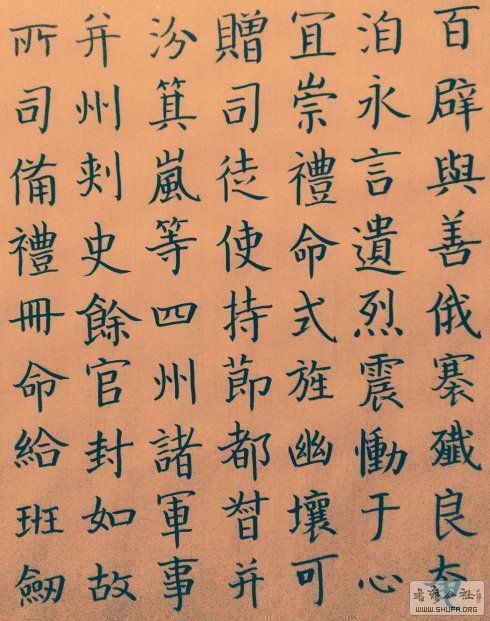 百辟與善俄褰殲良奄
洎永言遺烈震慟于心
宜崇禮命式旌幽壤可
贈司徒使持節都督并
汾箕嵐等四州諸軍事
并州刺史餘官封如故
所司備禮冊命給班劒
WWW.SHUFA.ORG